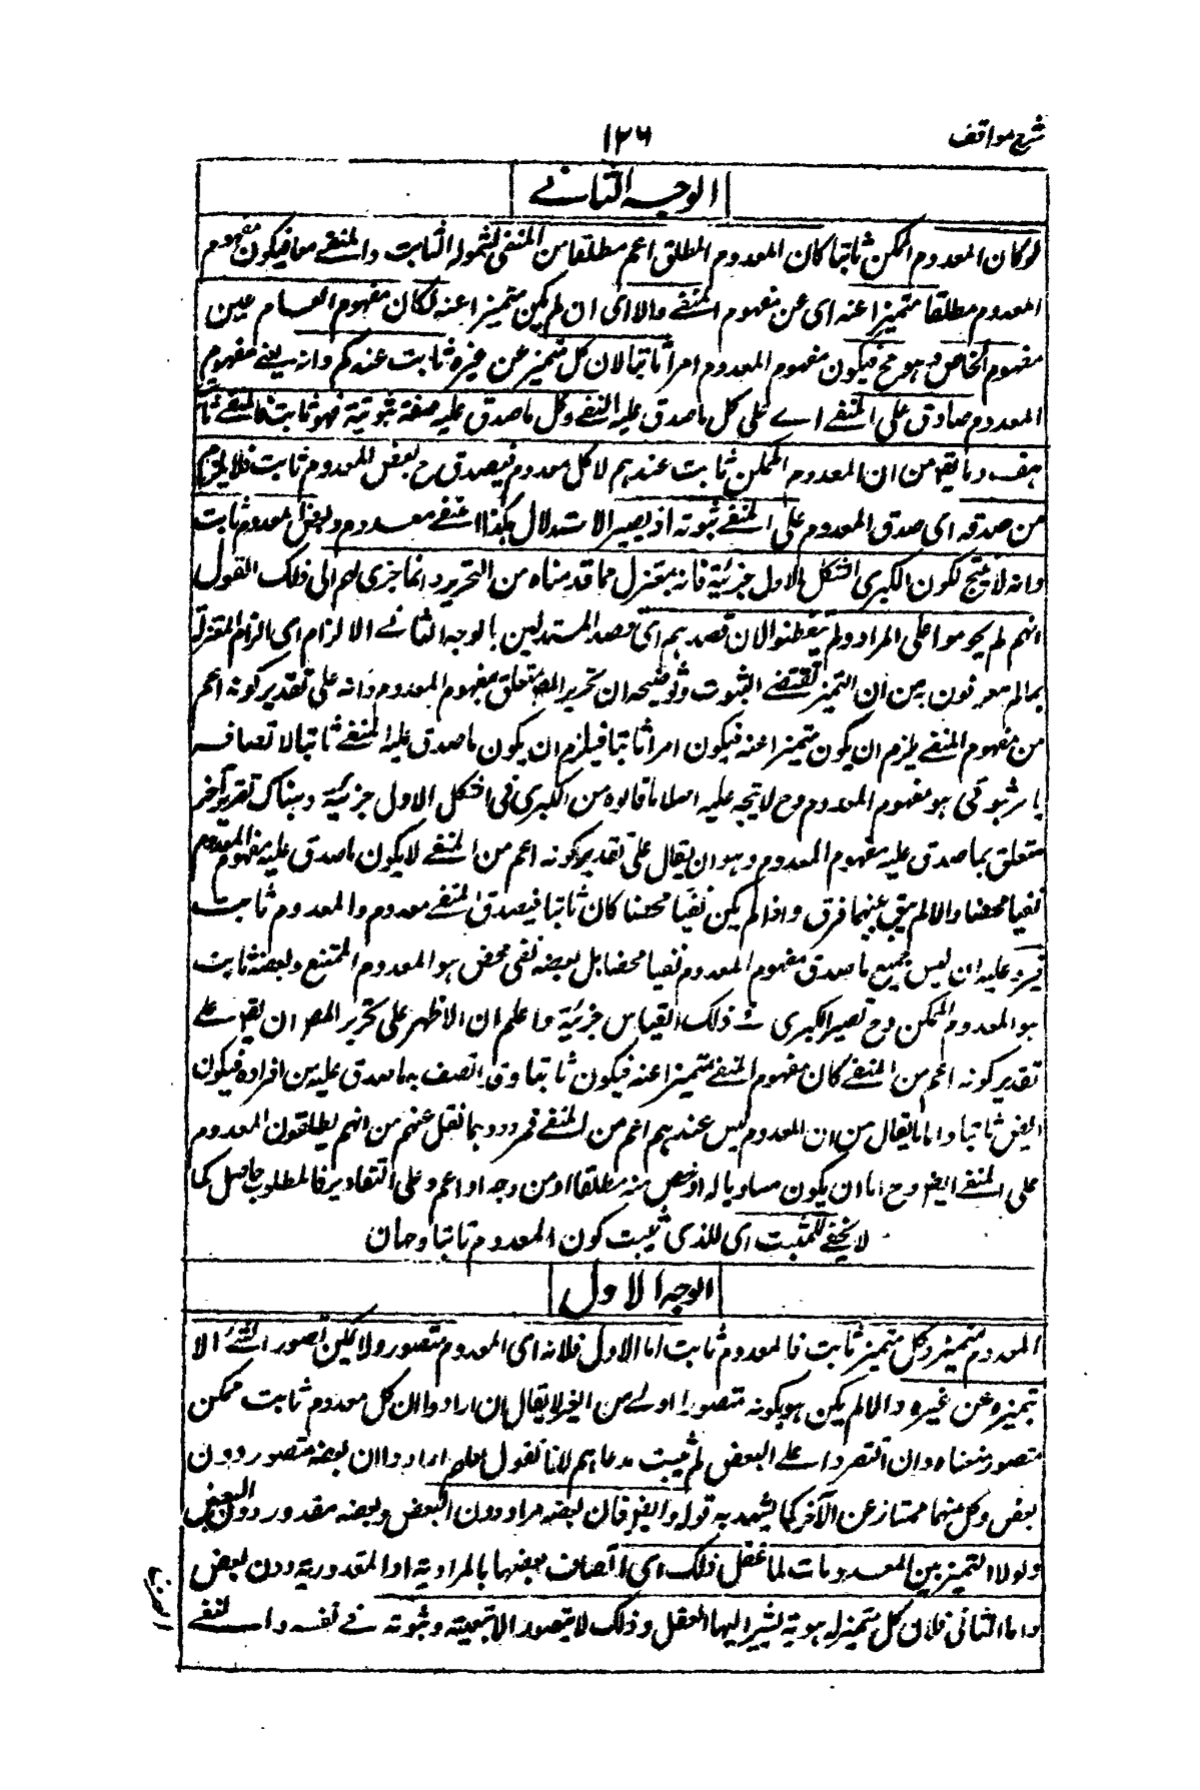 شرح مواقف
١٢٦
الوجه الثاني
لو كان المعدوم الممكن ثابتا كان المعدوم المطلق اعم مطلقا من المنفي لشموله الثابت والمنفي معا فيكون مفهوم
المعدوم مطلقا متميزا عنه اى عن مفهوم المنفي والا اى ان لم يكن متميزا عنه لكان مفهوم العام عين
مفهوم الخاص وهو مح فيكون مفهوم المعدوم امرا ثابتا لان كل متميز عن غيره ثابت عندكم وانه يعني مفهوم
المعدوم صادق على المنفي اے على كل ما صدق عليه المنفي وكل ما صدق عليه صفة ثبوتية فهو ثابت فالمنفي ثابت
هف وما يقو من ان المعدوم الممكن ثابت عندهم لا كل معدوم فيصدق ح بعض المعدوم ثابت فلا يلزم
من صدقه اى صدق المعدوم على المنفي ثبوته اذ يصير الاستدلال هكذا المنفي معدوم وبعض المعدوم ثابت
وانه لا ينتج لكون الكبرى الشكل الاول جزئية فانه بمعتزل مما قدمناه من التحرير وانما جرى لهم الى ذلك القول
انهم لم يحوموا على المراد ولم يتفطنوا لان قصدهم اى قصد المستدلين بالوجه الثاني الالزام اى الزام المعتزلة
بما هم معرفون به من ان التميز يقتضي الثبوت وتوضيحه ان تحرير المص متعلق بمفهوم المعدوم وانه على تقدير كونه اعم
من مفهوم المنفي يلزم ان يكون متميزا عنه فيكون امرا ثابتا فيلزم ان يكون ما صدق عليه المنفي ثابتا لاتصافه
بامر ثبوتى هو مفهوم المعدوم وح لا يتجه عليه اصلا ما قالوه من الكبرى فى الشكل الاول جزئية وهناك تقرير آخر
متعلق بما صدق عليه مفهوم المعدوم وهو ان يقال على تقدير كونه اعم من المنفي لا يكون ما صدق عليه مفهوم المعدوم
نفيا محضا والا لم يبق بينهما فرق واذا لم يكن نفيا محضا كان ثابتا فيصدق المنفي معدوم والمعدوم ثابت
فيرد عليه ان ليس جميع ما صدق مفهوم المعدوم نفيا محضا بل بعضه نفى محض هو المعدوم الممتنع وبعضه ثابت
هو المعدوم الممكن وح تصير الكبرى فے ذلك القياس جزئية واعلم ان الاظهر على تحرير المص ان يقو علے
تقدير كونه اعم من المنفي كان مفهوم المنفي متميزا عنه فيكون ثابتا وقد اتصف به ما صدق عليه من افراده فيكون
ايض ثابتا واما ما يقال من ان المعدوم ليس عندهم اعم من المنفي فمردود بما نقل عنهم من انهم يطلقون المعدوم
على المنفي ايض وح اما ان يكون مساويا له او اخص منه مطلقا او من وجه او اعم وعلى التقادير فالمطلوب حاصل كما
لا يخفي للمثبت اى للذى يثبت كون المعدوم ثابتا وجهان
الوجه الاول
المعدوم متميز وكل متميز ثابت فالمعدوم ثابت اما الاول فلانه اى المعدوم متصور ولا يمكن تصور الشئ الا
بتميزه عن غيره والا لم يكن هو بكونه متصورا اولے من الغير لا يقال ان ارادوا ان كل معدوم ثابت ممكن
متصور منعناه وان اقتصروا علے البعض لم يثبت مدعاهم لانا نقول لعلهم ارادوا ان بعضه متصور دون
بعض وكل منهما ممتاز عن الآخر كما يشهد به قوله وايض فان بعضه مراد دون البعض وبعضه مقدور دون البعض
ولولا التميز بين المعدومات لما عقل ذلك اى اتصاف بعضها بالمرادية او المقدورية دون بعض
واما الثانى فلان كل متميز له هوية يشير اليها العقل وذلك لا يتصور الا بتعينه وثبوته فے نفسه والنفي